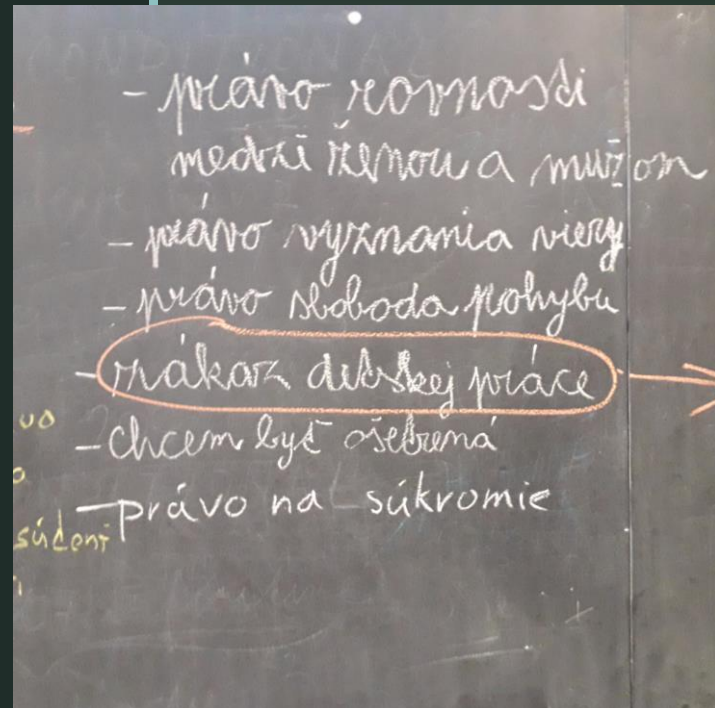 - právo rovnosti
medzi ženou a mužom
- právo vyznania viery
- právo sloboda pohybu
- zákaz detskej práce
- chcem byť ošetrená
- právo na súkromie
súdení